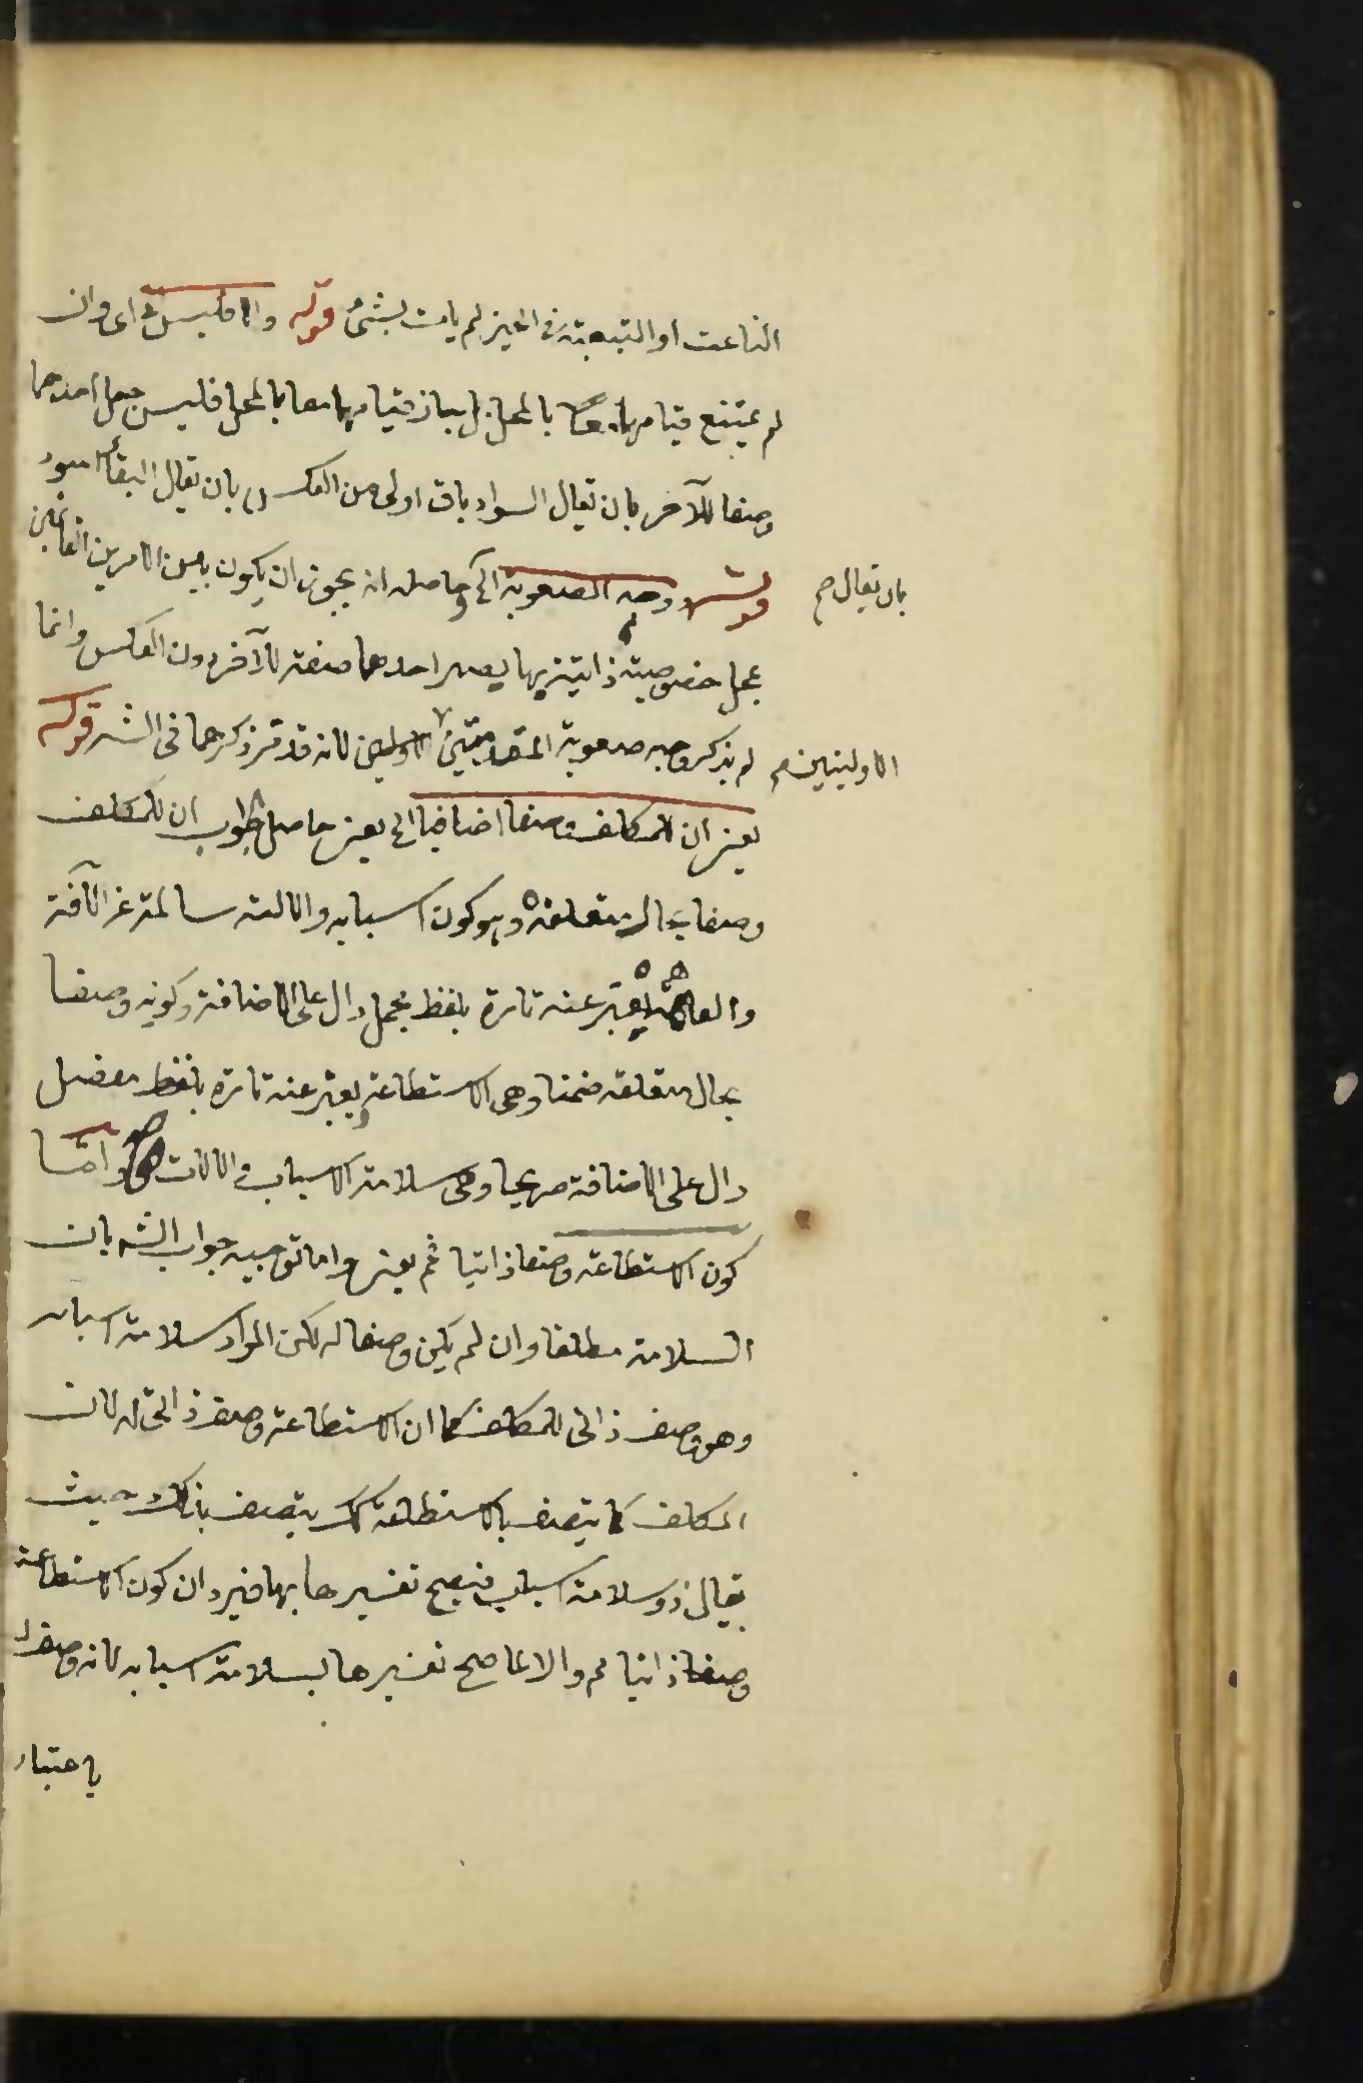 الناعت او التبعية فى الحيز لم يات بشئ قوله والا فليس الخ اى وان
لم يمتنع قيامهما معا بالمحل بل جاز قيامهما معا بالمحل فليس جعل احدهما
وصفا للآخر بان يقال السواد باق اولى من العكس بان يقال البقاء اسود
قوله وجه الصعوبة الخ وحاصله انه يجوز ان يكون بين الامرين القائمين
بان يقال صح
بمحل خصوصية ذاتية بها يصير احدهما صفة للآخر دون العكس وانما
لم يذكر وجه صعوبة المقدمتين لانه قد مر ذكرهما فى الشر قوله
الاوليين صح
يعنى ان للمكلف وصفا اضافيا الخ يعنى حاصل الجواب ان للمكلف
وصفا بحال متعلقه وهو كون اسبابه والالته سالمة عن الآفة
والعاهة يعبر عنه تارة بلفظ مجمل دال على الاضافة وكونه وصفا
بحال متعلقه ضمنا وهى الاستطاعة ويعبر عنه تارة بلفظ مفصل
دال على الاضافة صريحا وهى سلامة الاسباب والالات قوله واما
كون الاستطاعة وصفا ذاتيا ثم يعنى واما توجيه جواب الشه بان
السلامة مطلقا وان لم يكن وصفا له لكن المراد سلامة اسبابه
وهو وصف ذاتى للمكلف كما ان الاستطاعة وصف ذاتى له لان
المكلف كما يتصف بالاستطاعة كك يتصف بذلك حيث
يقال ذو سلامة اسباب فيصح تفسيرها بها فيرد ان كون الاستطاعة
وصفا ذاتيا مم والا لما صح تفسيرها بسلامة اسبابه لانه وصف له
باعتبار